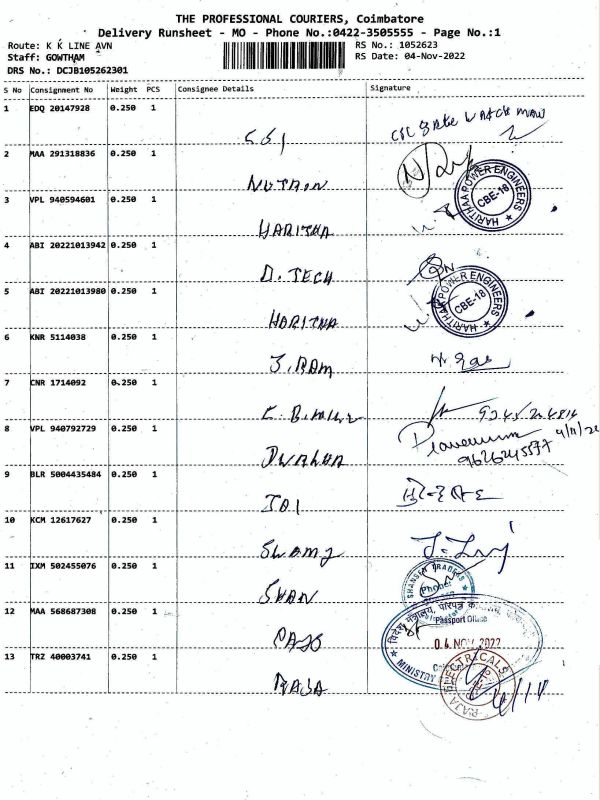 THE PROFESSIONAL COURIERS, Coimbatore
Delivery Runsheet - MO - Phone No.:0422-3505555 - Page No.:1
Route: K K LINE AVN
RS No.: 1052623
Staff: GOWTHAM
RS Date: 04-Nov-2022
DRS No.: DCJB105262301
S No Consignment No Weight PCS Consignee Details Signature
1 EDQ 20147928 0.250 1
2 MAA 291318836 0.250 1
NUTRON
HARITHAA POWER ENGINEERS
CBE-18
3 VPL 940594601 0.250 1
HARITHA
4 ABI 20221013942 0.250 1
D.TECH
HARITHAA POWER ENGINEERS
CBE-18
5 ABI 20221013980 0.250 1
HARITHA
6 KNR 5114038 0.250 1
J.RAM
7 CNR 1714092 0.250 1
8 VPL 940792729 0.250 1
9626245577
9 BLR 5004435484 0.250 1
10 KCM 12617627 0.250 1
SWAMY
11 IXM 502455076 0.250 1
SHAN
SHANSEN TRADERS
Phone:
12 MAA 568687308 0.250 1
PASS
Passport Office
04 NOV 2022
MINISTRY
13 TRZ 40003741 0.250 1
RAJA